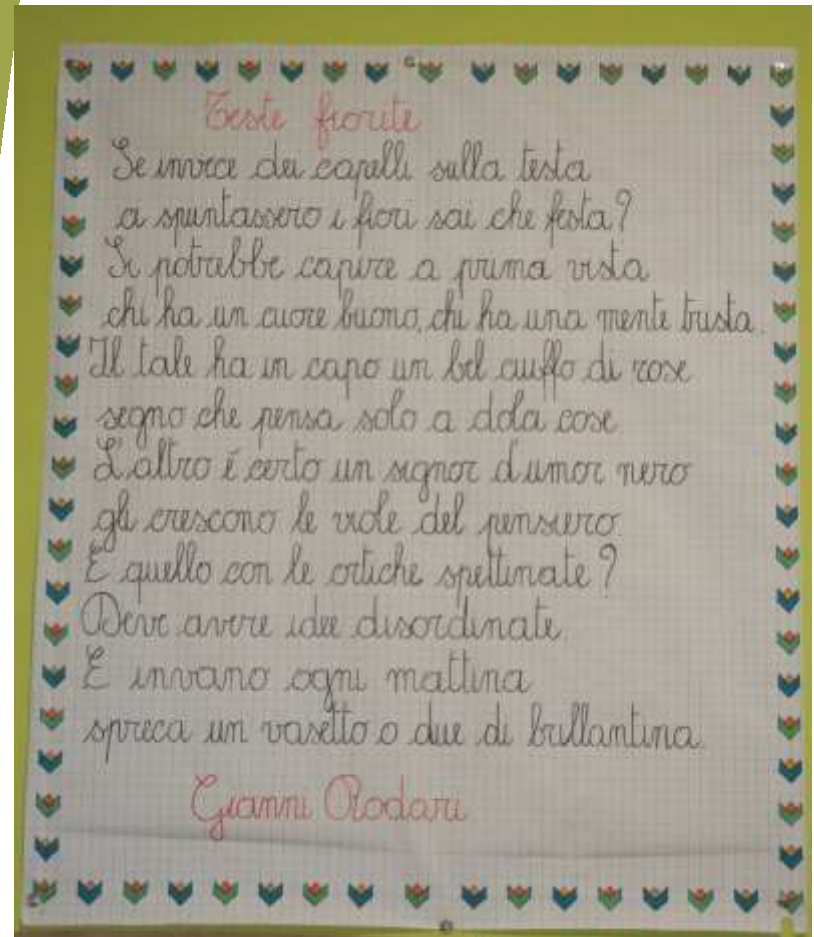 Teste fiorite
Se invece dei capelli sulla testa
a spuntassero i fiori sai che festa?
Si potrebbe capire a prima vista
chi ha un cuore buono, chi ha una mente trista.
Il tale ha in capo un bel ciuffo di rose
segno che pensa solo a dola cose.
L'altro é certo un signor d'umor nero
gli crescono le viole del pensiero.
E quello con le ortiche spettinate?
Deve avere idee disordinate
E invano ogni mattina
spreca un vasetto o due di brillantina.
Gianni Rodari